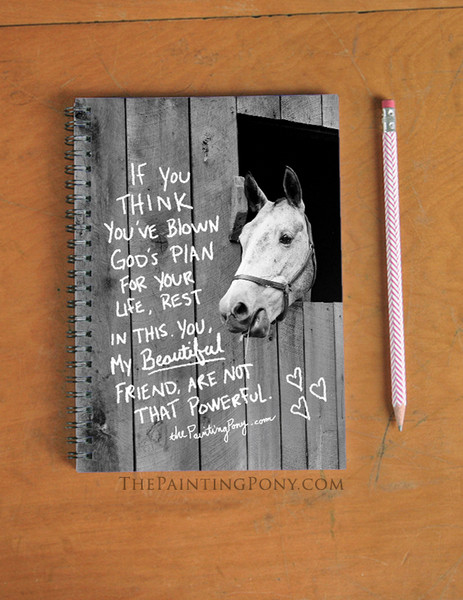 IF YOU
THINK
YOU'VE BLOWN
GOD'S PLAN
FOR YOUR
LIFE, REST
IN THIS. YOU,
MY Beautiful
FRIEND, ARE NOT
THAT POWERFUL.
thePaintingPony.com
THEPAINTINGPONY.COM